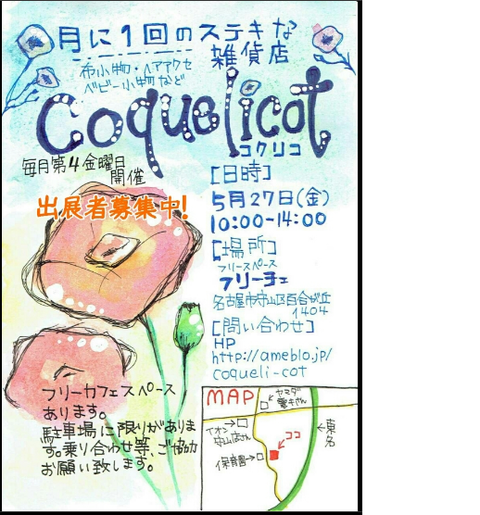 月に1回のステキな
雑貨店
布小物・ヘアアクセ
ベビー小物など
Coquelicot
コクリコ
毎月第4金曜日
開催
出展者募集中!
[日時]
5月27日(金)
10:00-14:00
[場所]
フリースペース
フリーチェ
名古屋市守山区百合が丘
1404
[問い合わせ]
HP
http://ameblo.jp/
coqueli-cot
フリーカフェスペース
あります。
駐車場に限りがありま
す。乗り合わせ等、ご協力
お願い致します。
MAP
ヤマダ
電キさん
イオン
守山店さん
ココ
保育園
東名